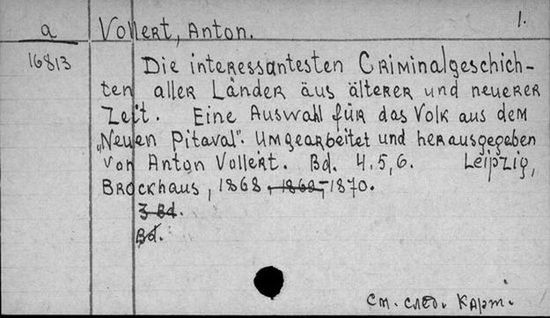 a Vollert, Anton. 1.
16813 Die interessantesten Criminalgeschich-
ten aller Länder äus älterer und neuerer
Zeit. Eine Auswahl für das Volk aus dem
„Neuen Pitaval". Umgearbeitet und herausgegeben
von Anton Vollert. Bd. 4,5,6. Leipzig,
Brockhaus, 1868, 1869, -1870.
3 Bd.
Bd.
См. след. карт.